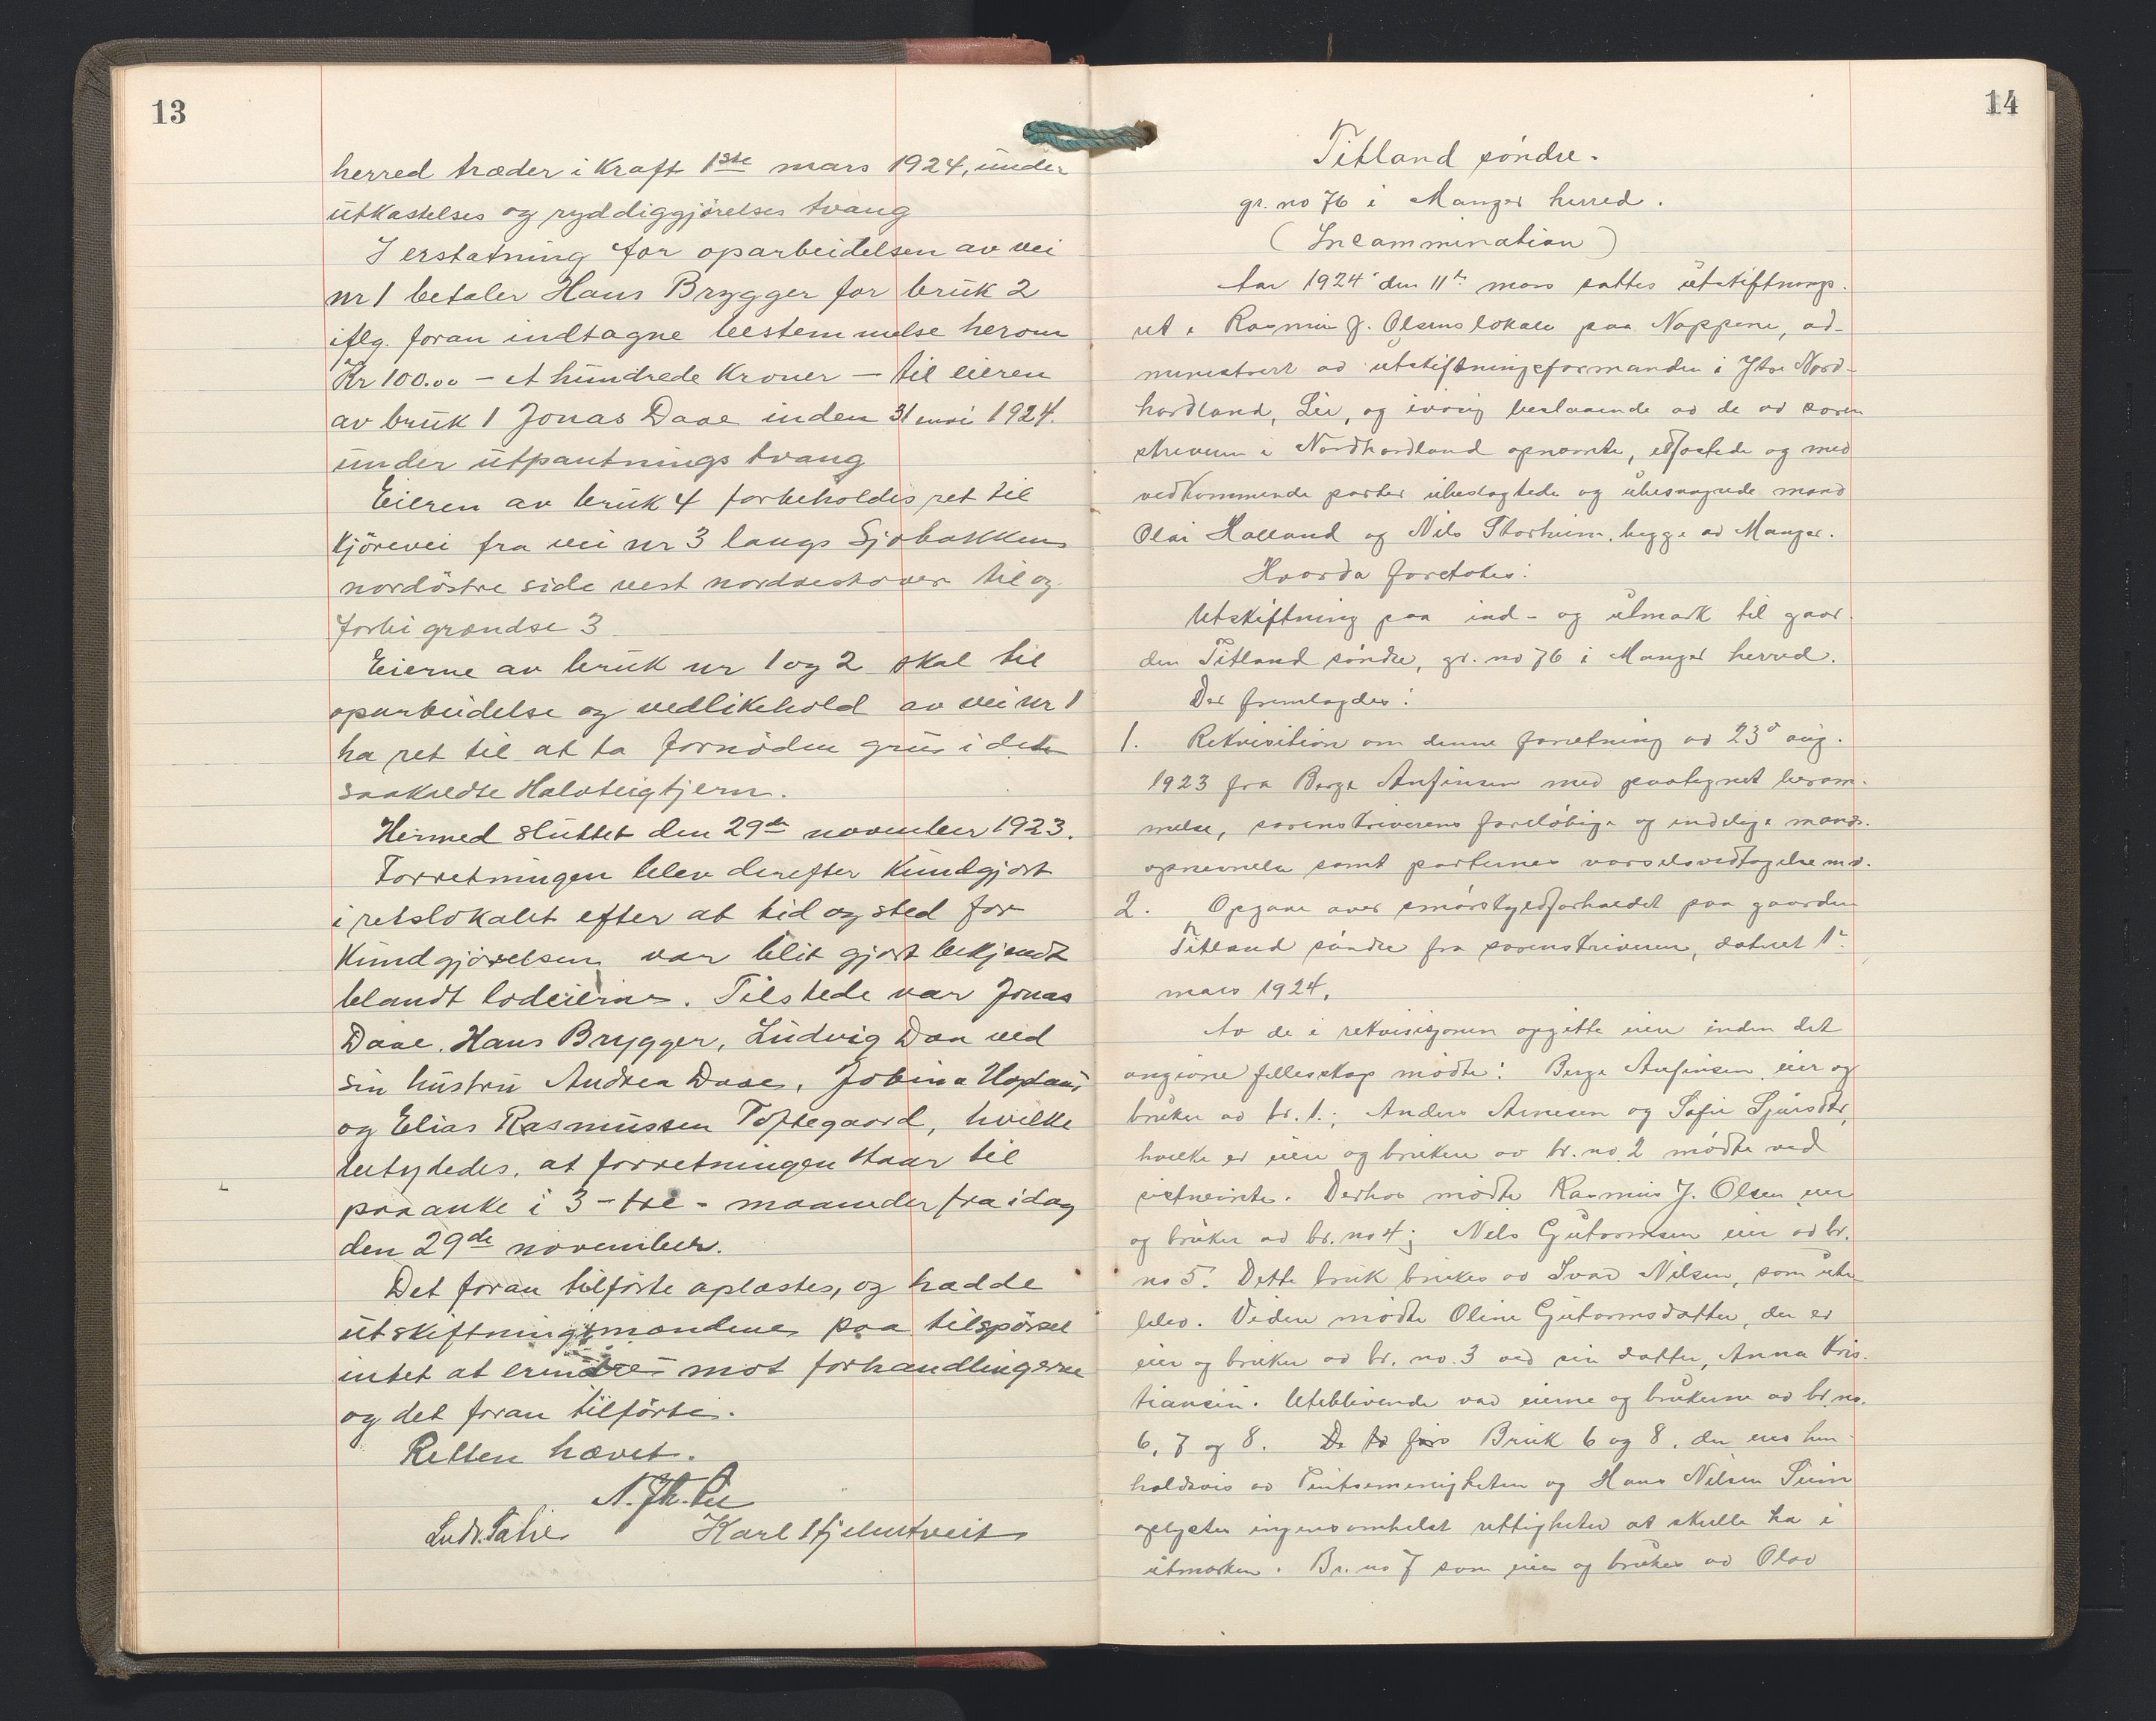 13
herred træder i kraft 1ste mars 1924, under
utkastelses og ryddiggjørelses tvang
I erstatning for oparbeidelsen av vei
nr 1 betaler Hans Brygger for bruk 2
iflg. foran indtagne bestemmelse herom
Kr 100.00 – et hundrede kroner – til eieren
av bruk 1 Jonas Daae inden 31 mai 1924.
under utpantnings tvang
Eieren av bruk 4 forbeholdes ret til
kjørevei fra vei nr 3 langs Sjøbakkens
nordöstre side vest nordvestover til og
forbi grændse 3
Eierne av bruk nr 1 og 2 skal til
oparbeidelse og vedlikehold av vei nr 1
ha ret til at ta fornöden grus i det
saakaldte Halvteigtjern.
Hermed sluttet den 29de november 1923.
Forretningen blev derefter kundgjort
i retslokalet efter at tid og sted for
kundgjörelsen var blit gjort bekjendt
blandt lodeierne. Tilstede var Jonas
Daae. Hans Brygger, Ludvig Daae ved
sin hustru Andrea Daae, Jobina Hopland,
og Elias Rasmussen Toftegaard, hvilke
betydedes, at forretningen staar til
paaanke i 3 – tre – maaneder fra idag
den 29de november.
Det foran tilförte oplæstes, og hadde
utskiftningsmændene paa tilspörsel
intet at erindre mot forhandlingerne
og det foran tilförte.
Retten hævet.
N. Th. Lie
Ludv. Karl Hjelmtveit
14
Titland söndre.
gr. no 76 i Manger herred.
(Incammination)
Aar 1924 den 11te mars sattes utskiftnings-
ret i Rasmus J. Olsens lokale paa Noppene, ad-
ministrert av utskiftningsformanden i Ytre Nord-
hordland, Lie, og iövrig bestaaende av de av soren
skriveren i Nordhordland opnævnte, edfæstede og med
vedkommende parter ubeslægtede og ubesvogrede mænd
Olai Halland og Nils Storheim, begge av Manger.
Hvorda foretokes:
Utskiftning paa ind- og utmark til gaar-
den Titland söndre, gr. no 76 i Manger herred.
Der fremlagdes:
1. Rekvisition om denne forretning av 23d aug.
1923 fra Berge Anfinsen med paategnet beram-
melse, sorenskriverens foreløbige og endelige mands-
opnevnelse samt parternes varselsvedtagelse m.v.
2. Opgave over smørskyldforholdet paa gaarden
Titland söndre fra sorenskriveren, datert 1.
mars 1924.
Av de i rekvisisjonen opgitte eiere inden det
angivne fellesskap mödte: Berge Anfinsen eier og
bruker av br. 1.; Anders Arnesen og Sofie Sjursdtr,
hvilke er eiere og brukere av br. no. 2 mödte ved
sistnevnte. Derhos mödte Rasmus J. Olsen eier
og bruker av br. no 4; Nels Guttormsen eier av br.
no 5. Dette bruk brukes av Ivar Nilsen, som ute
blev. Videre mödte Oline Guttormsdatter, der er
eier og bruker av br. no. 3 ved sin datter, Anna Kris-
tiansen. Uteblivende var eierne og brukerne av br. no.
6, 7 og 8. Bruk 6 og 8, der eies hen-
holdsvis av Pinsemenigheten og Hans Nilsen Seim
oplystes ingensomhelst rettigheter at skulle ha i
utmarken. Br. no 7 som eies og brukes av Olav